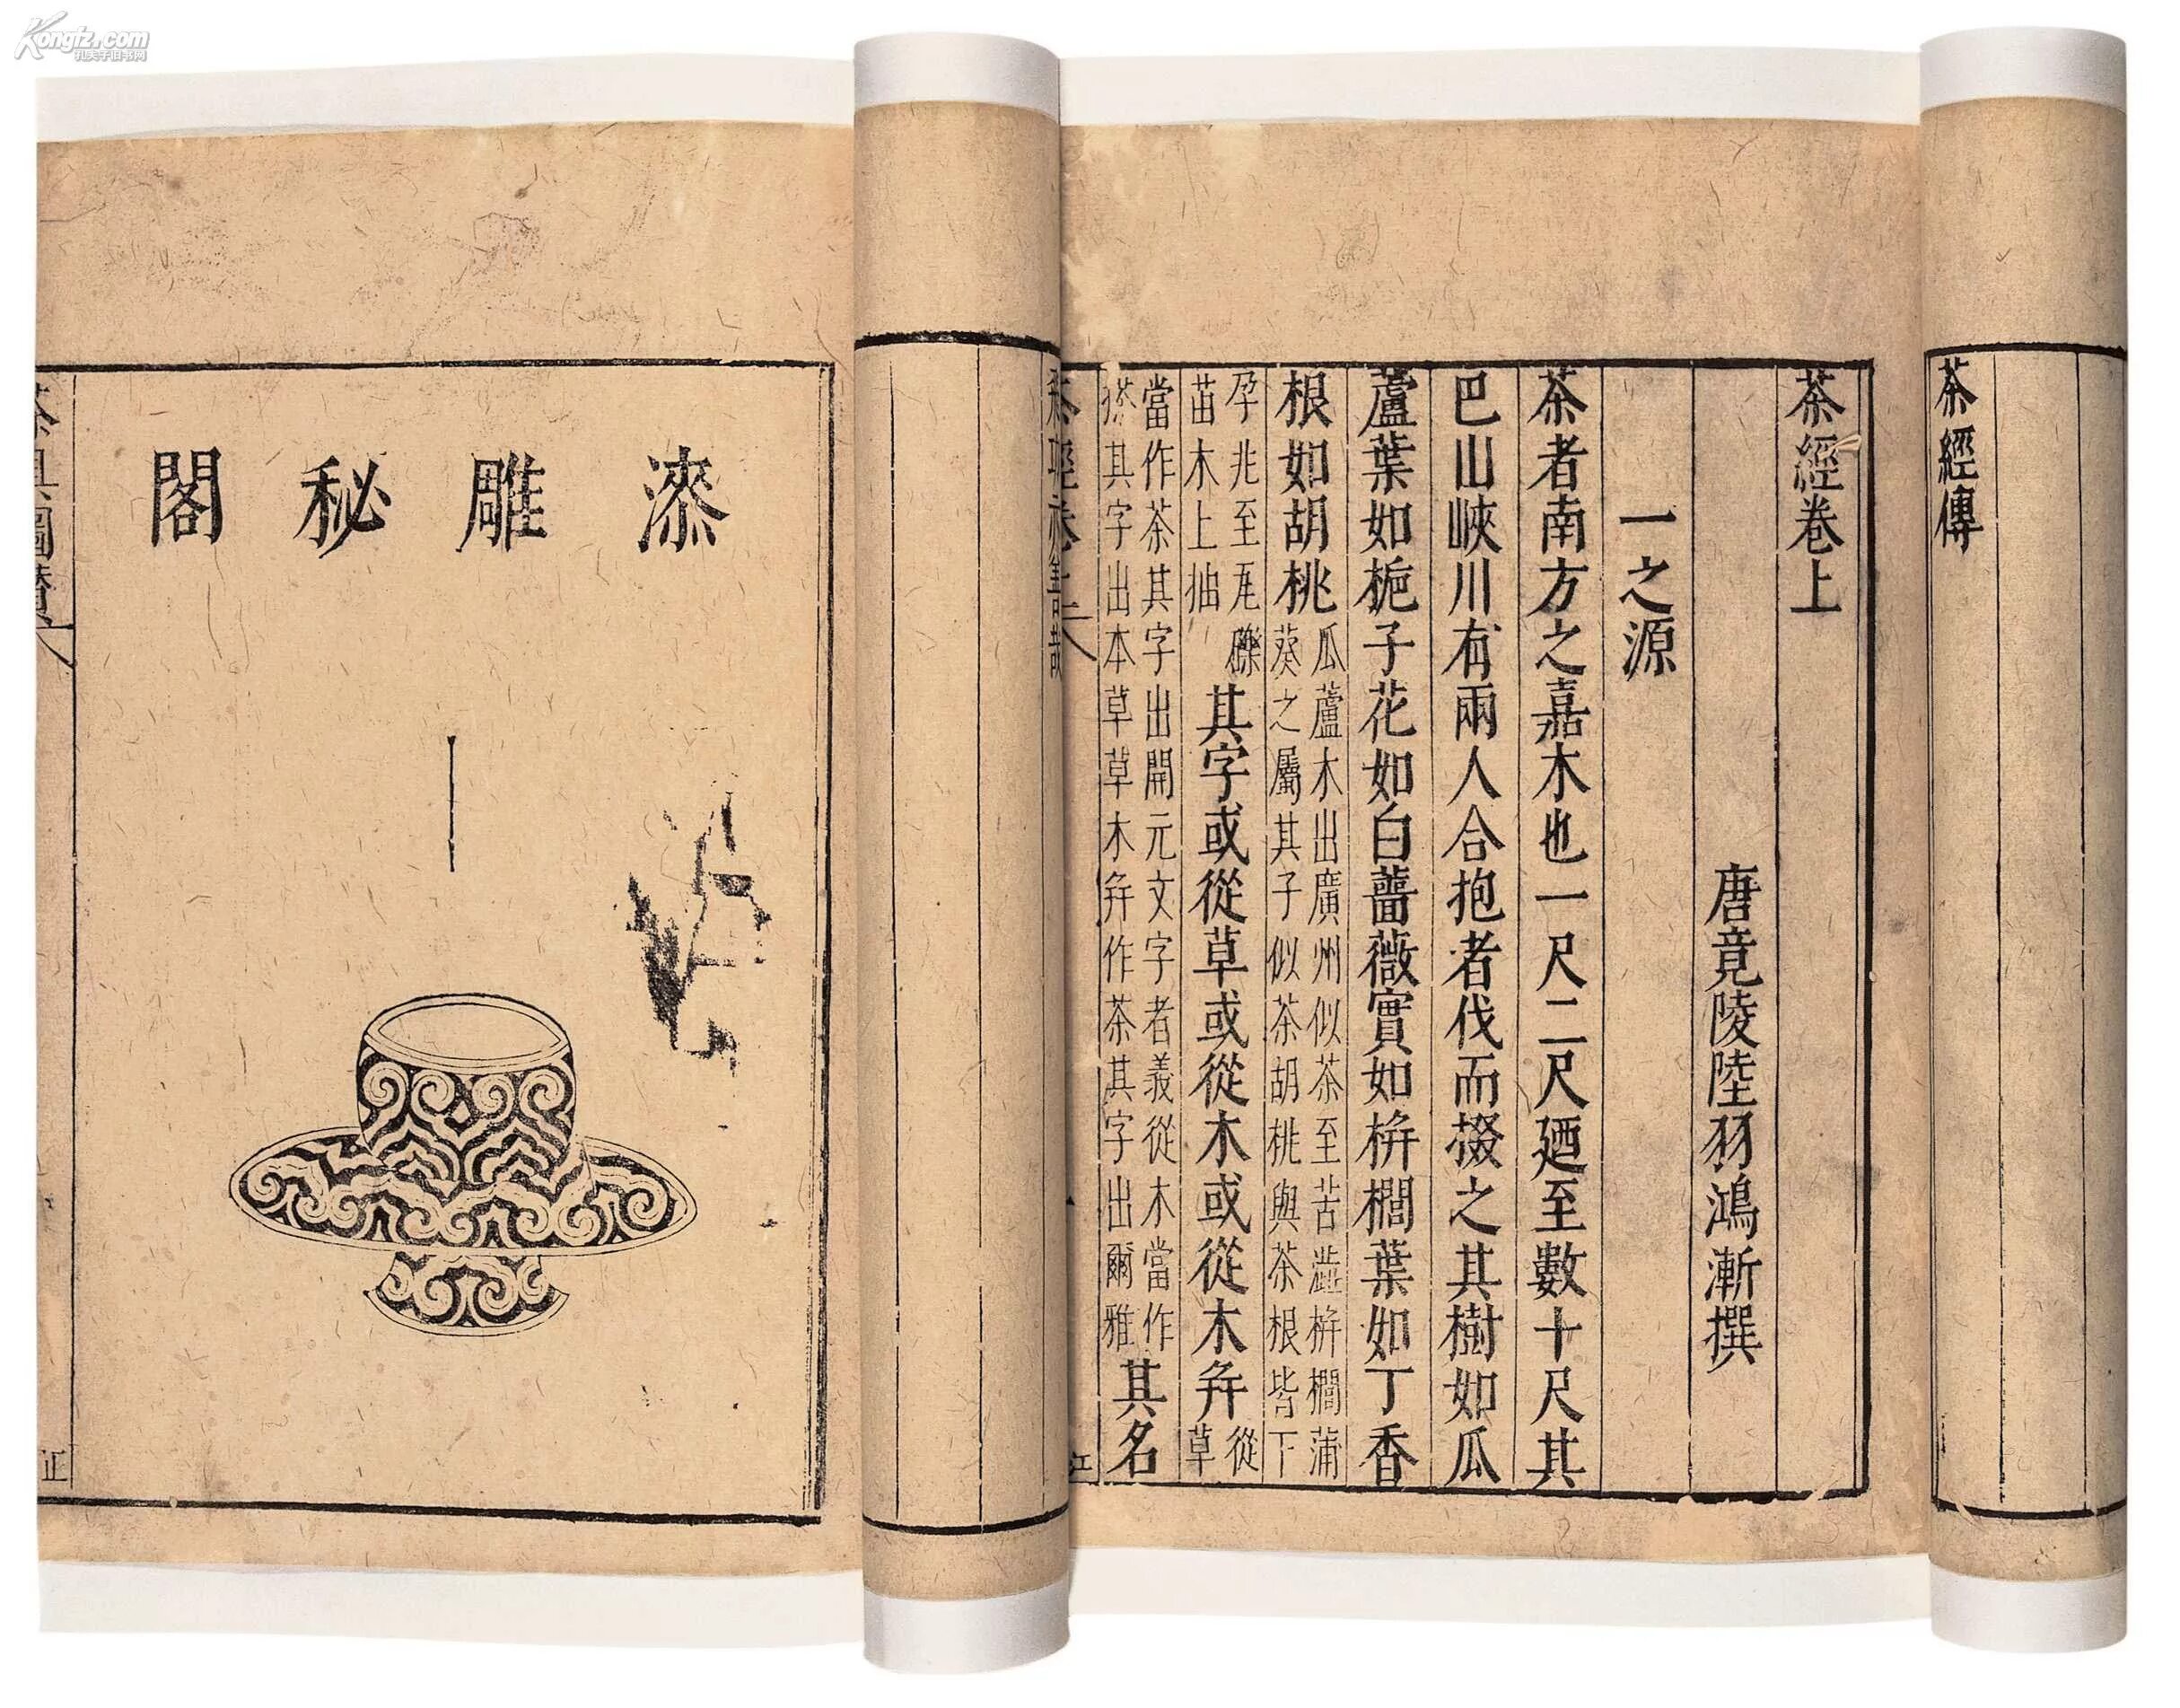 Kongfz.com
孔夫子旧书网
茶經傳
茶經卷上
唐竟陵陸羽鴻漸撰
一之源
茶者南方之嘉木也一尺二尺廼至數十尺其
巴山峽川有兩人合抱者伐而掇之其樹如瓜
蘆葉如梔子花如白薔薇實如栟櫚葉如丁香
根如胡桃
瓜蘆木出廣州似茶至苦澁栟櫚蒲
葵之屬其子似茶胡桃與茶根皆下
孕兆至瓦礫
苗木上抽
其字或從草或從木或從木并
從
草
當作茶其字出開元文字者義從木當作
搽其字出本草草木并作茶其字出爾雅
其名
漆雕秘閣